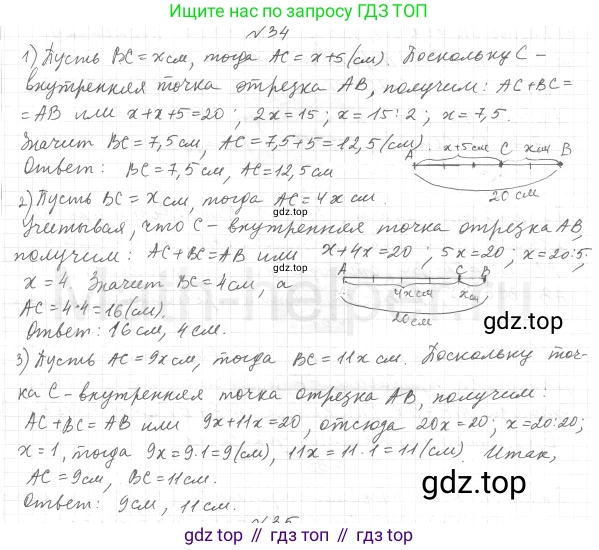 Ищите нас по запросу в поиске
ГДЗ ТОП
№34
1) Пусть BC = x см, тогда AC = x+5 (см). Поскольку C –
внутренняя точка отрезка AB, получим: AC+BC=
=AB или x+x+5=20; 2x=15; x=15:2; x=7,5.
Значит BC=7,5см, AC=7,5+5=12,5(см).
Ответ: BC=7,5см, AC=12,5см
A x+5см C xсм B
20 см
gdz.top
2) Пусть BC = x см, тогда AC = 4x см.
Учитывая, что C – внутренняя точка отрезка AB,
получим: AC+BC=AB или x+4x=20; 5x=20; x=20:5;
x=4. Значит BC=4см, а
AC=4·4=16(см).
Ответ: 16см, 4см.
A C B
4xсм xсм
20см
gdz.top
gdz.top
3) Пусть AC=9x см, тогда BC=11x см. Поскольку точ-
ка C – внутренняя точка отрезка AB, получим:
AC+BC=AB или 9x+11x=20, отсюда 20x=20; x=20:20;
x=1, тогда 9x=9·1=9(см), 11x=11·1=11(см). Итак,
AC=9см, BC=11см.
Ответ: 9см, 11см.
gdz.top
gdz.top
№35
gdz.top // gdz.top // gdz.top